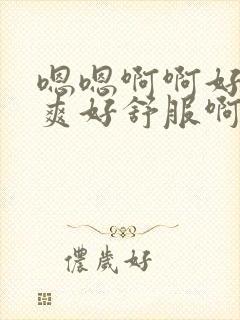 嗯嗯啊啊好
爽好舒服啊
儂歲好